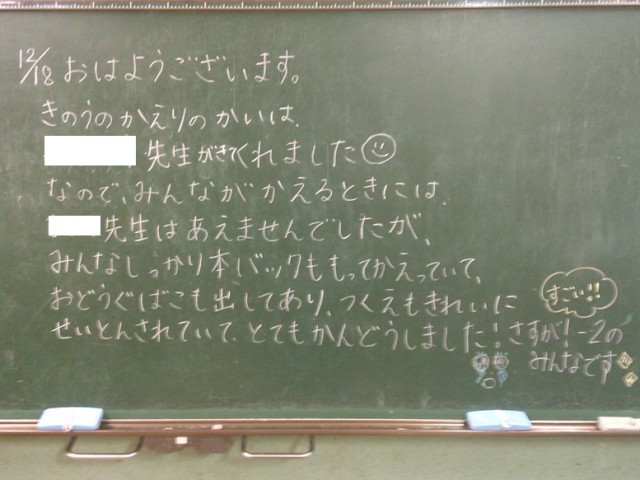 12/18 おはようございます。
きのうのかえりのかいは、
先生がきてくれました
なので、みんながかえるときには、
先生はあえませんでしたが、
みんなしっかり本バックももってかえっていて、
おどうぐばこも出してあり、つくえもきれいに
すごい!!
せいとんされていて、とてもかんどうしました!さすが!一2の
みんなです